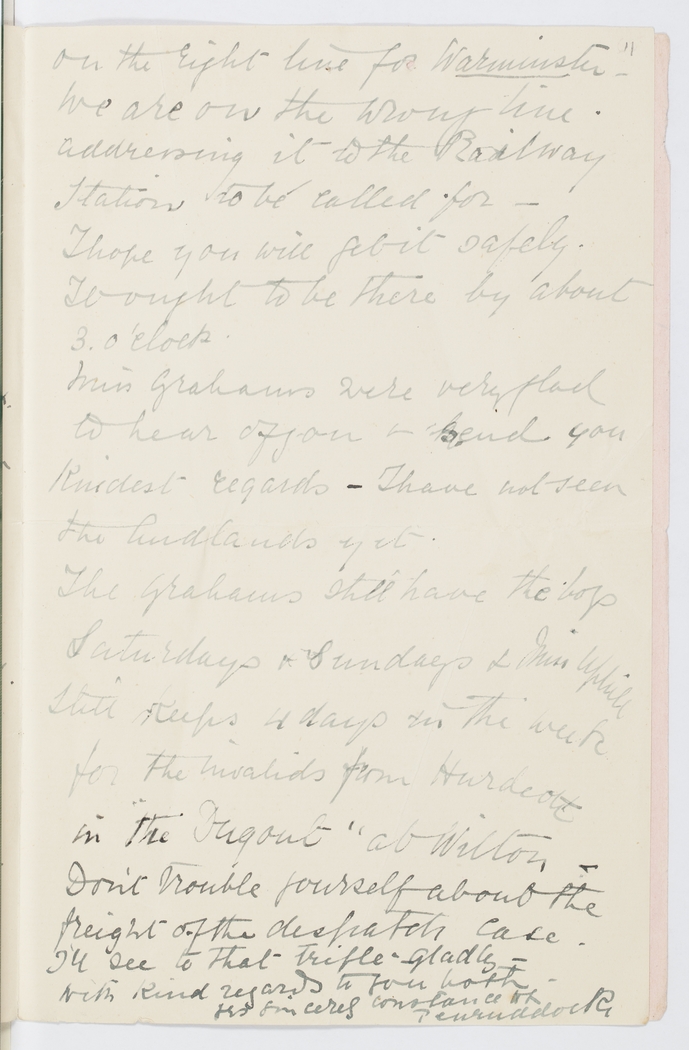 11
on the right line for Warminster -
We are on the wrong line.
addressing it to the Railway
Station to be called for -
I hope you will get it safely.
It ought to be there by about
3. o'clock.
Miss Grahams were very glad
to hear of you & send you
Kindest regards - I have not seen
the yet.
The Grahams still have the boys
Saturdays & Sundays & Miss Uphill
still keeps 4 days in the week
for the invalids from Hurdcott
in "the Dugout" at Wilton -
Don't trouble yourself about the
freight of the despatch case.
I'll see to that trifle gladly -
With kind regards to you both -
yrs sincerely Constance
Penruddocke